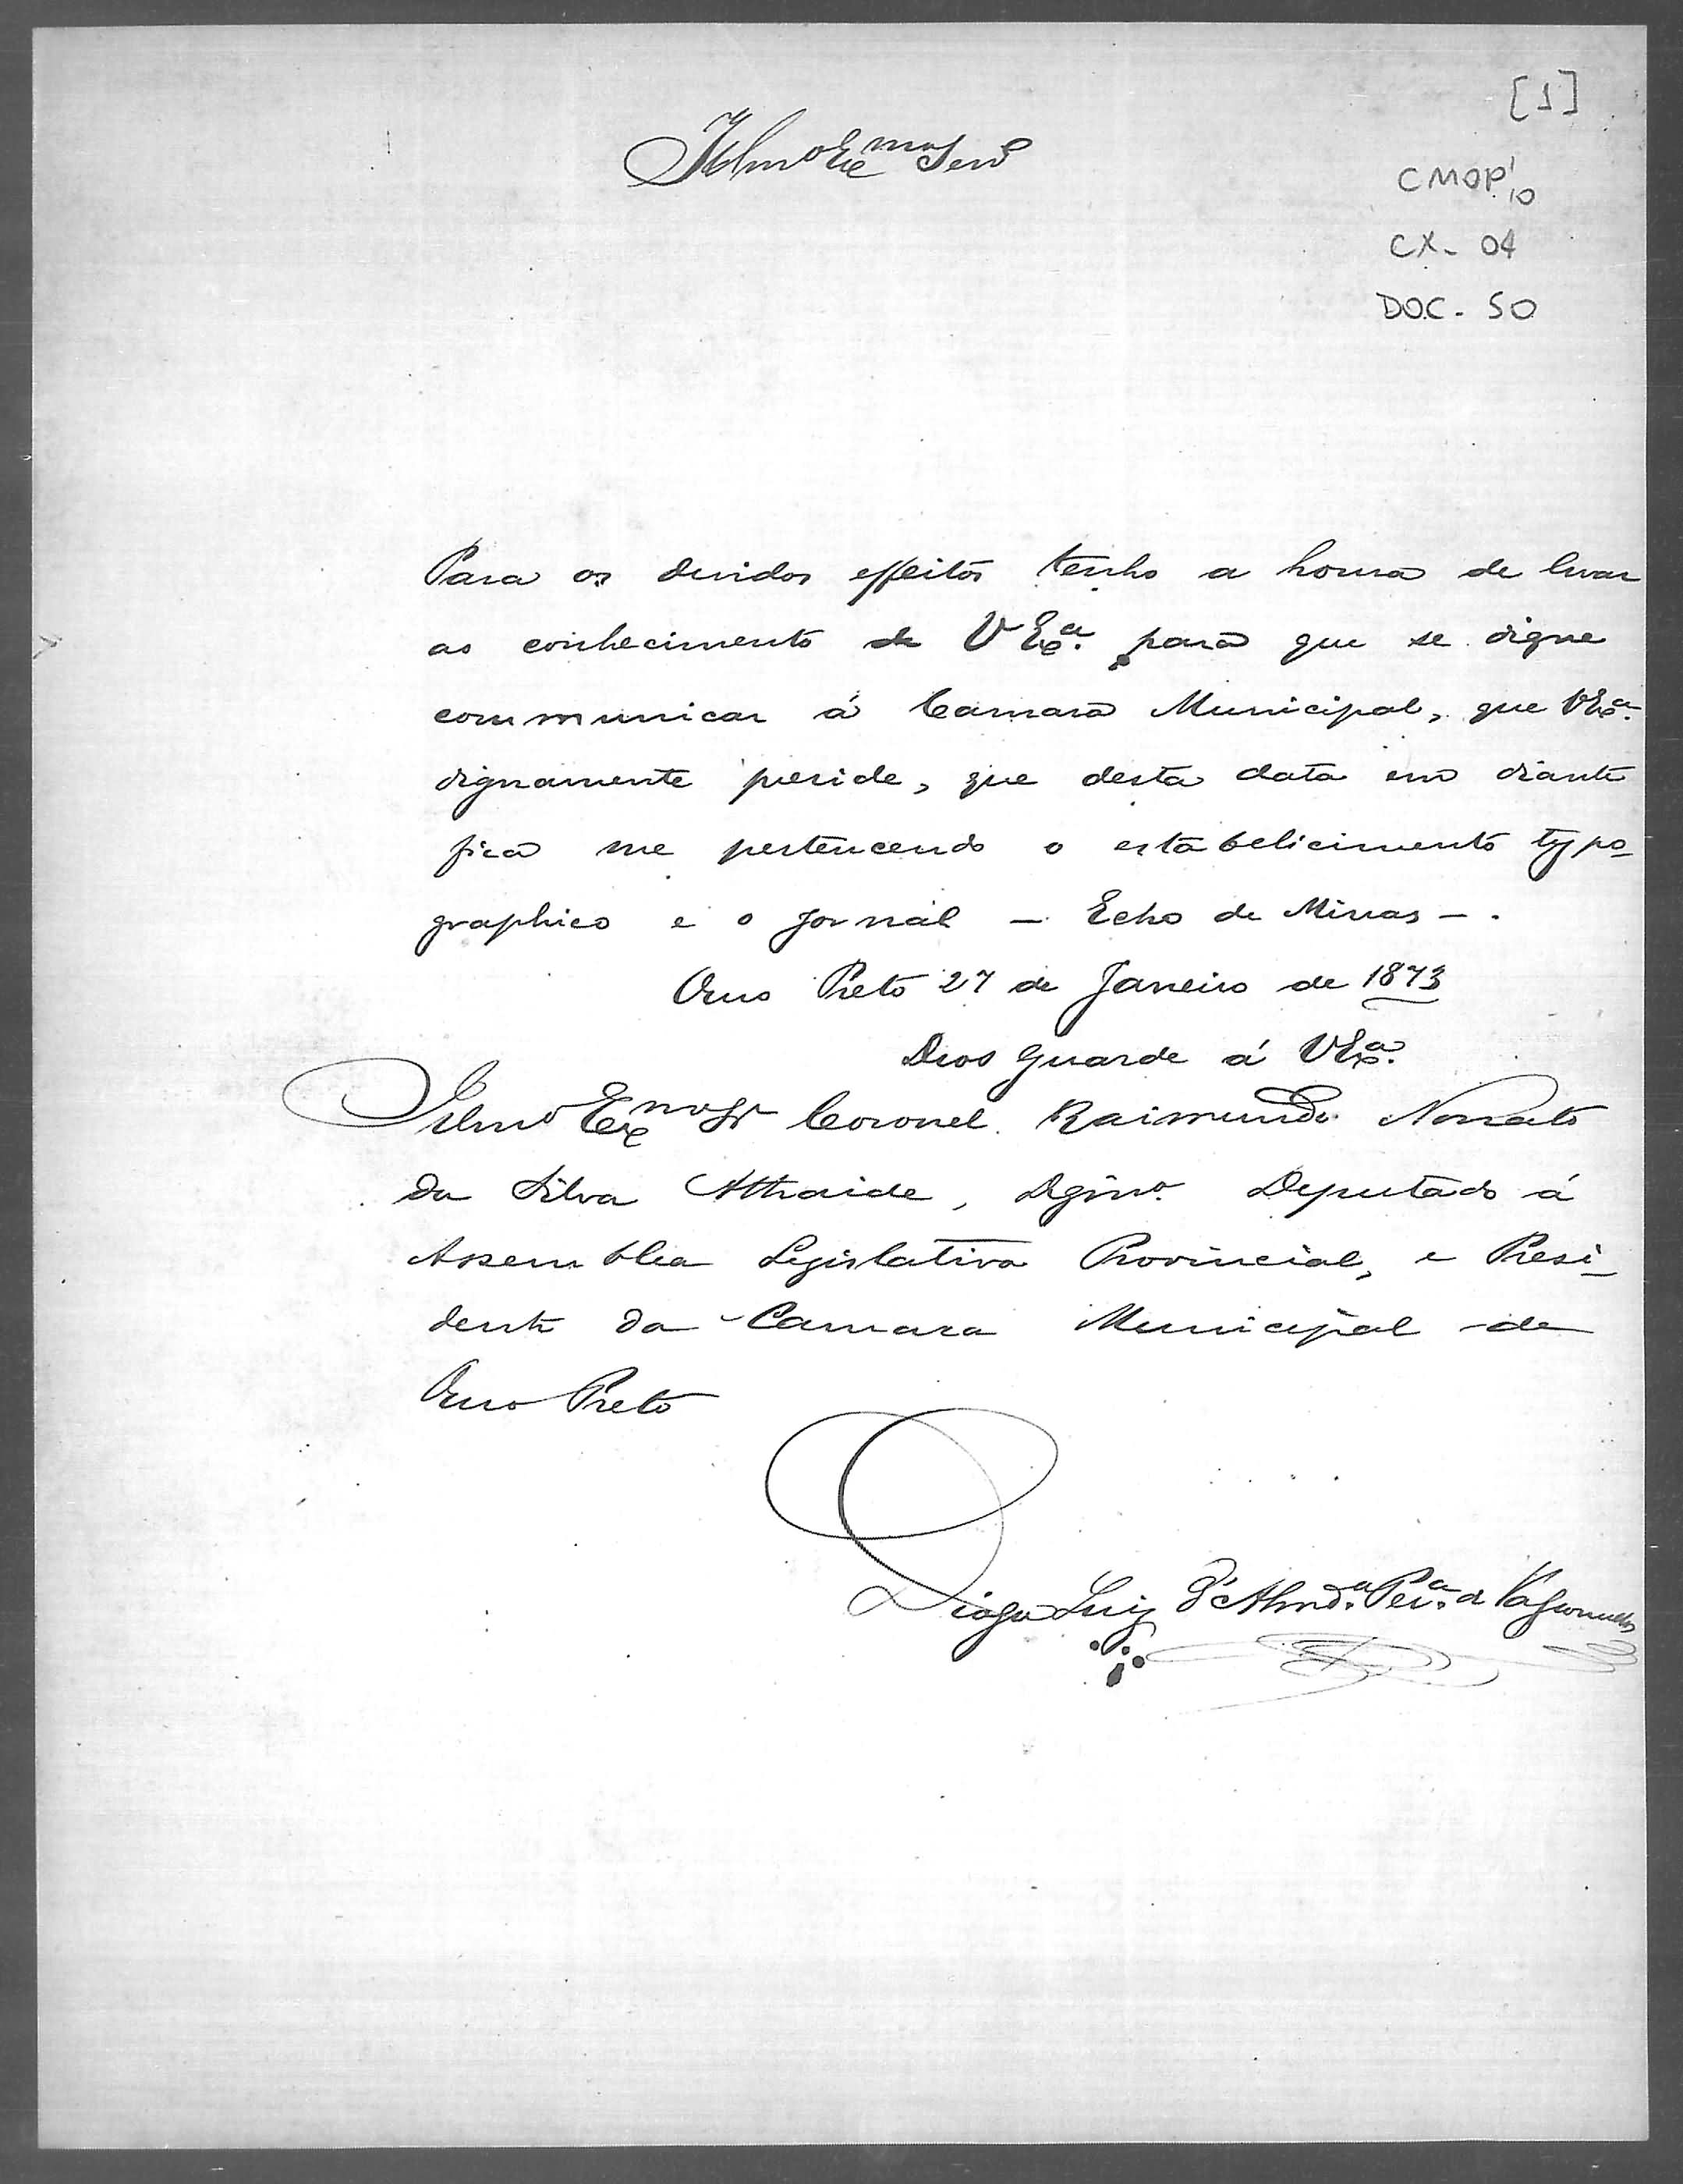 [1]
Illmo Exmo Senr
CMOP 1/10
CX- 04
DOC- 50
Para os devidos effeitos tenho a honra de levar
ao conhecimento de V Exa. para que se digne
communicar á Camara Municipal, que VExa.
dignamente preside, que desta data em diante
fica me pertencendo o estabelicimento typo-
graphico e o jornal - Echo de Minas -.
Ouro Preto 27 de Janeiro de 1873
Deos Guarde á VExa.
Illmo Exmo Sr Coronel Raimundo Nonato
da Silva Athaide, Dgmo. Deputado á
Assemblea Legislativa Provincial, e Presi-
dente da Camara Municipal de
Ouro Preto
Diogo Luiz d'Almda. Pera. de Vasconcellos